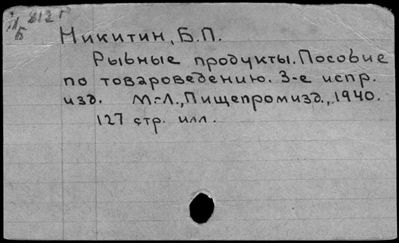 Никитин, Б.П.
Рыбные продукты. Пособие
по товароведению. 3-е испр.
изд. М.-Л., Пищепромизд., 1940.
127 стр. илл.